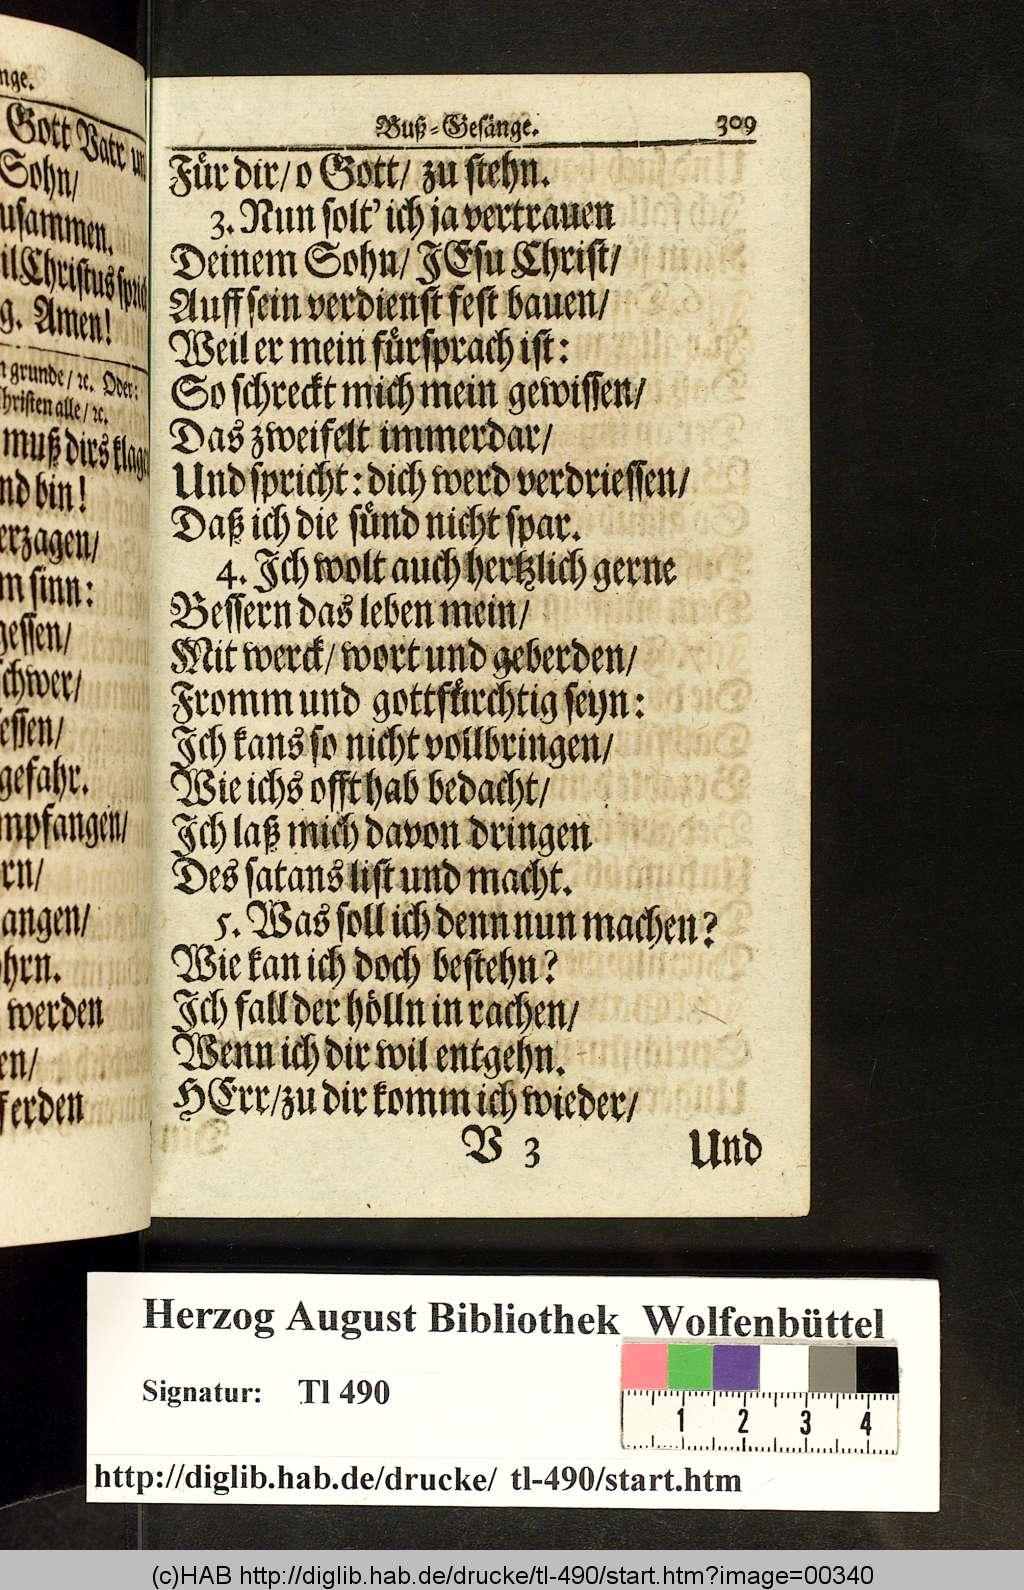 Gott Vatr
Sohn/
usammen.
Christus
Amen!
grunde/ ꝛc. Oder:
alle/ ꝛc.
muß dirs
bin!
sinn:
gefahr.
werden
Buß-Gesänge. 309
Für dir/ o Gott/ zu stehn.
3. Nun solt' ich ja vertrauen
Deinem Sohn/ JEsu Christ/
Auff sein verdienst fest bauen/
Weil er mein fürsprach ist:
So schreckt mich mein gewissen/
Das zweifelt immerdar/
Und spricht: dich werd verdriessen/
Daß ich die sünd nicht spar.
4. Ich wolt auch hertzlich gerne
Bessern das leben mein/
Mit werck/ wort und geberden/
Fromm und gottfürchtig seyn:
Ich kans so nicht vollbringen/
Wie ichs offt hab bedacht/
Ich laß mich davon dringen
Des satans list und macht.
5. Was soll ich denn nun machen?
Wie kan ich doch bestehn?
Ich fall der hölln in rachen/
Wenn ich dir wil entgehn.
HErr/ zu dir komm ich wieder/
V 3 Und
Herzog August Bibliothek Wolfenbüttel
Signatur: Tl 490
1 2 3 4
http://diglib.hab.de/drucke/ tl-490/start.htm
(c)HAB http://diglib.hab.de/drucke/tl-490/start.htm?image=00340